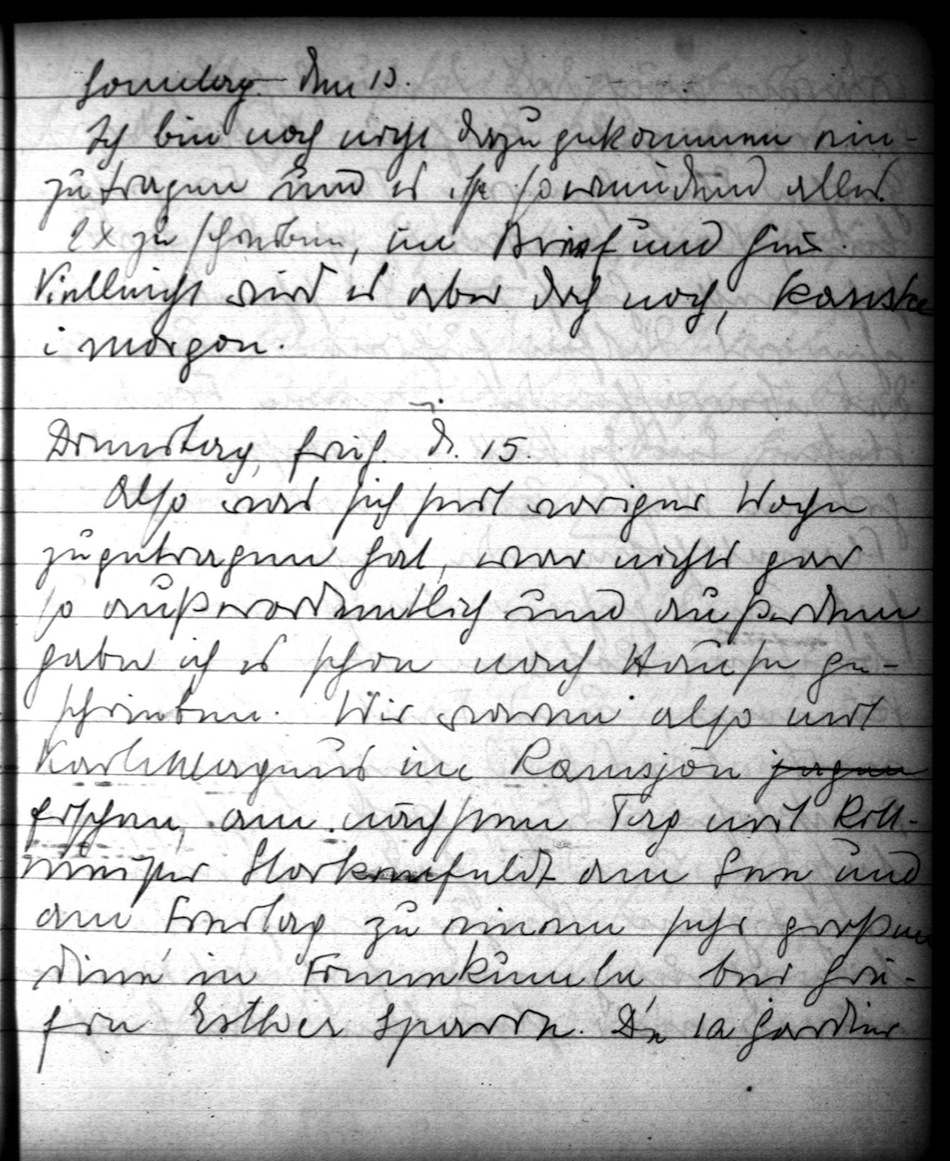 Sonntag den 13.
Ich bin noch nicht dazu gekommen ein-
zutragen und es ist so ermüdend alles
2x zu schreiben, im Brief und hier.
Vielleicht wird es aber doch noch, kanske
i morgon.
Dienstag, früh. d. 15.
Also was sich seit voriger Woche
zugetragen hat, war nichts gar
so außerordentlich und außerdem
habe ich es schon nach Hause ge-
schrieben. Wir waren also mit
Karl Magnus im Ramsjön jagen
fischen, am nächsten Tag mit Ritt-
meister Storkenfeldt am See und
am Freitag zu einem sehr großen
diné in Frennekumla bei Grä-
fin Esther Sparre. De la Gardies